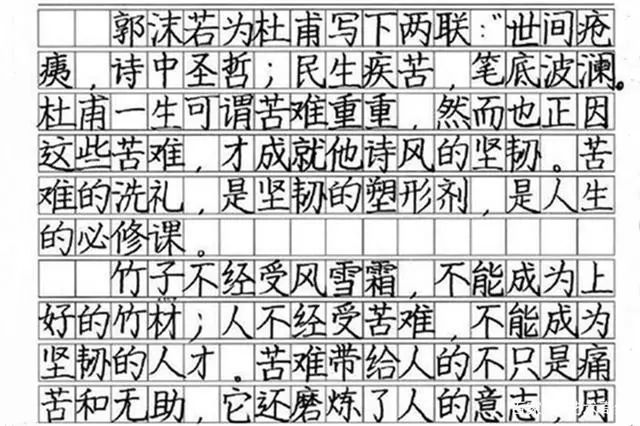 郭沫若为杜甫写下两联:"世间疮
痍,诗中圣哲;民生疾苦,笔底波澜。
杜甫一生可谓苦难重重,然而也正因
这些苦难,才成就他诗风的坚韧。苦
难的洗礼,是坚韧的塑形剂,是人生
的必修课。
竹子不经受风雪霜,不能成为上
好的竹材;人不经受苦难,不能成为
坚韧的人才。苦难带给人的不只是痛
苦和无助,它还磨炼了人的意志,用